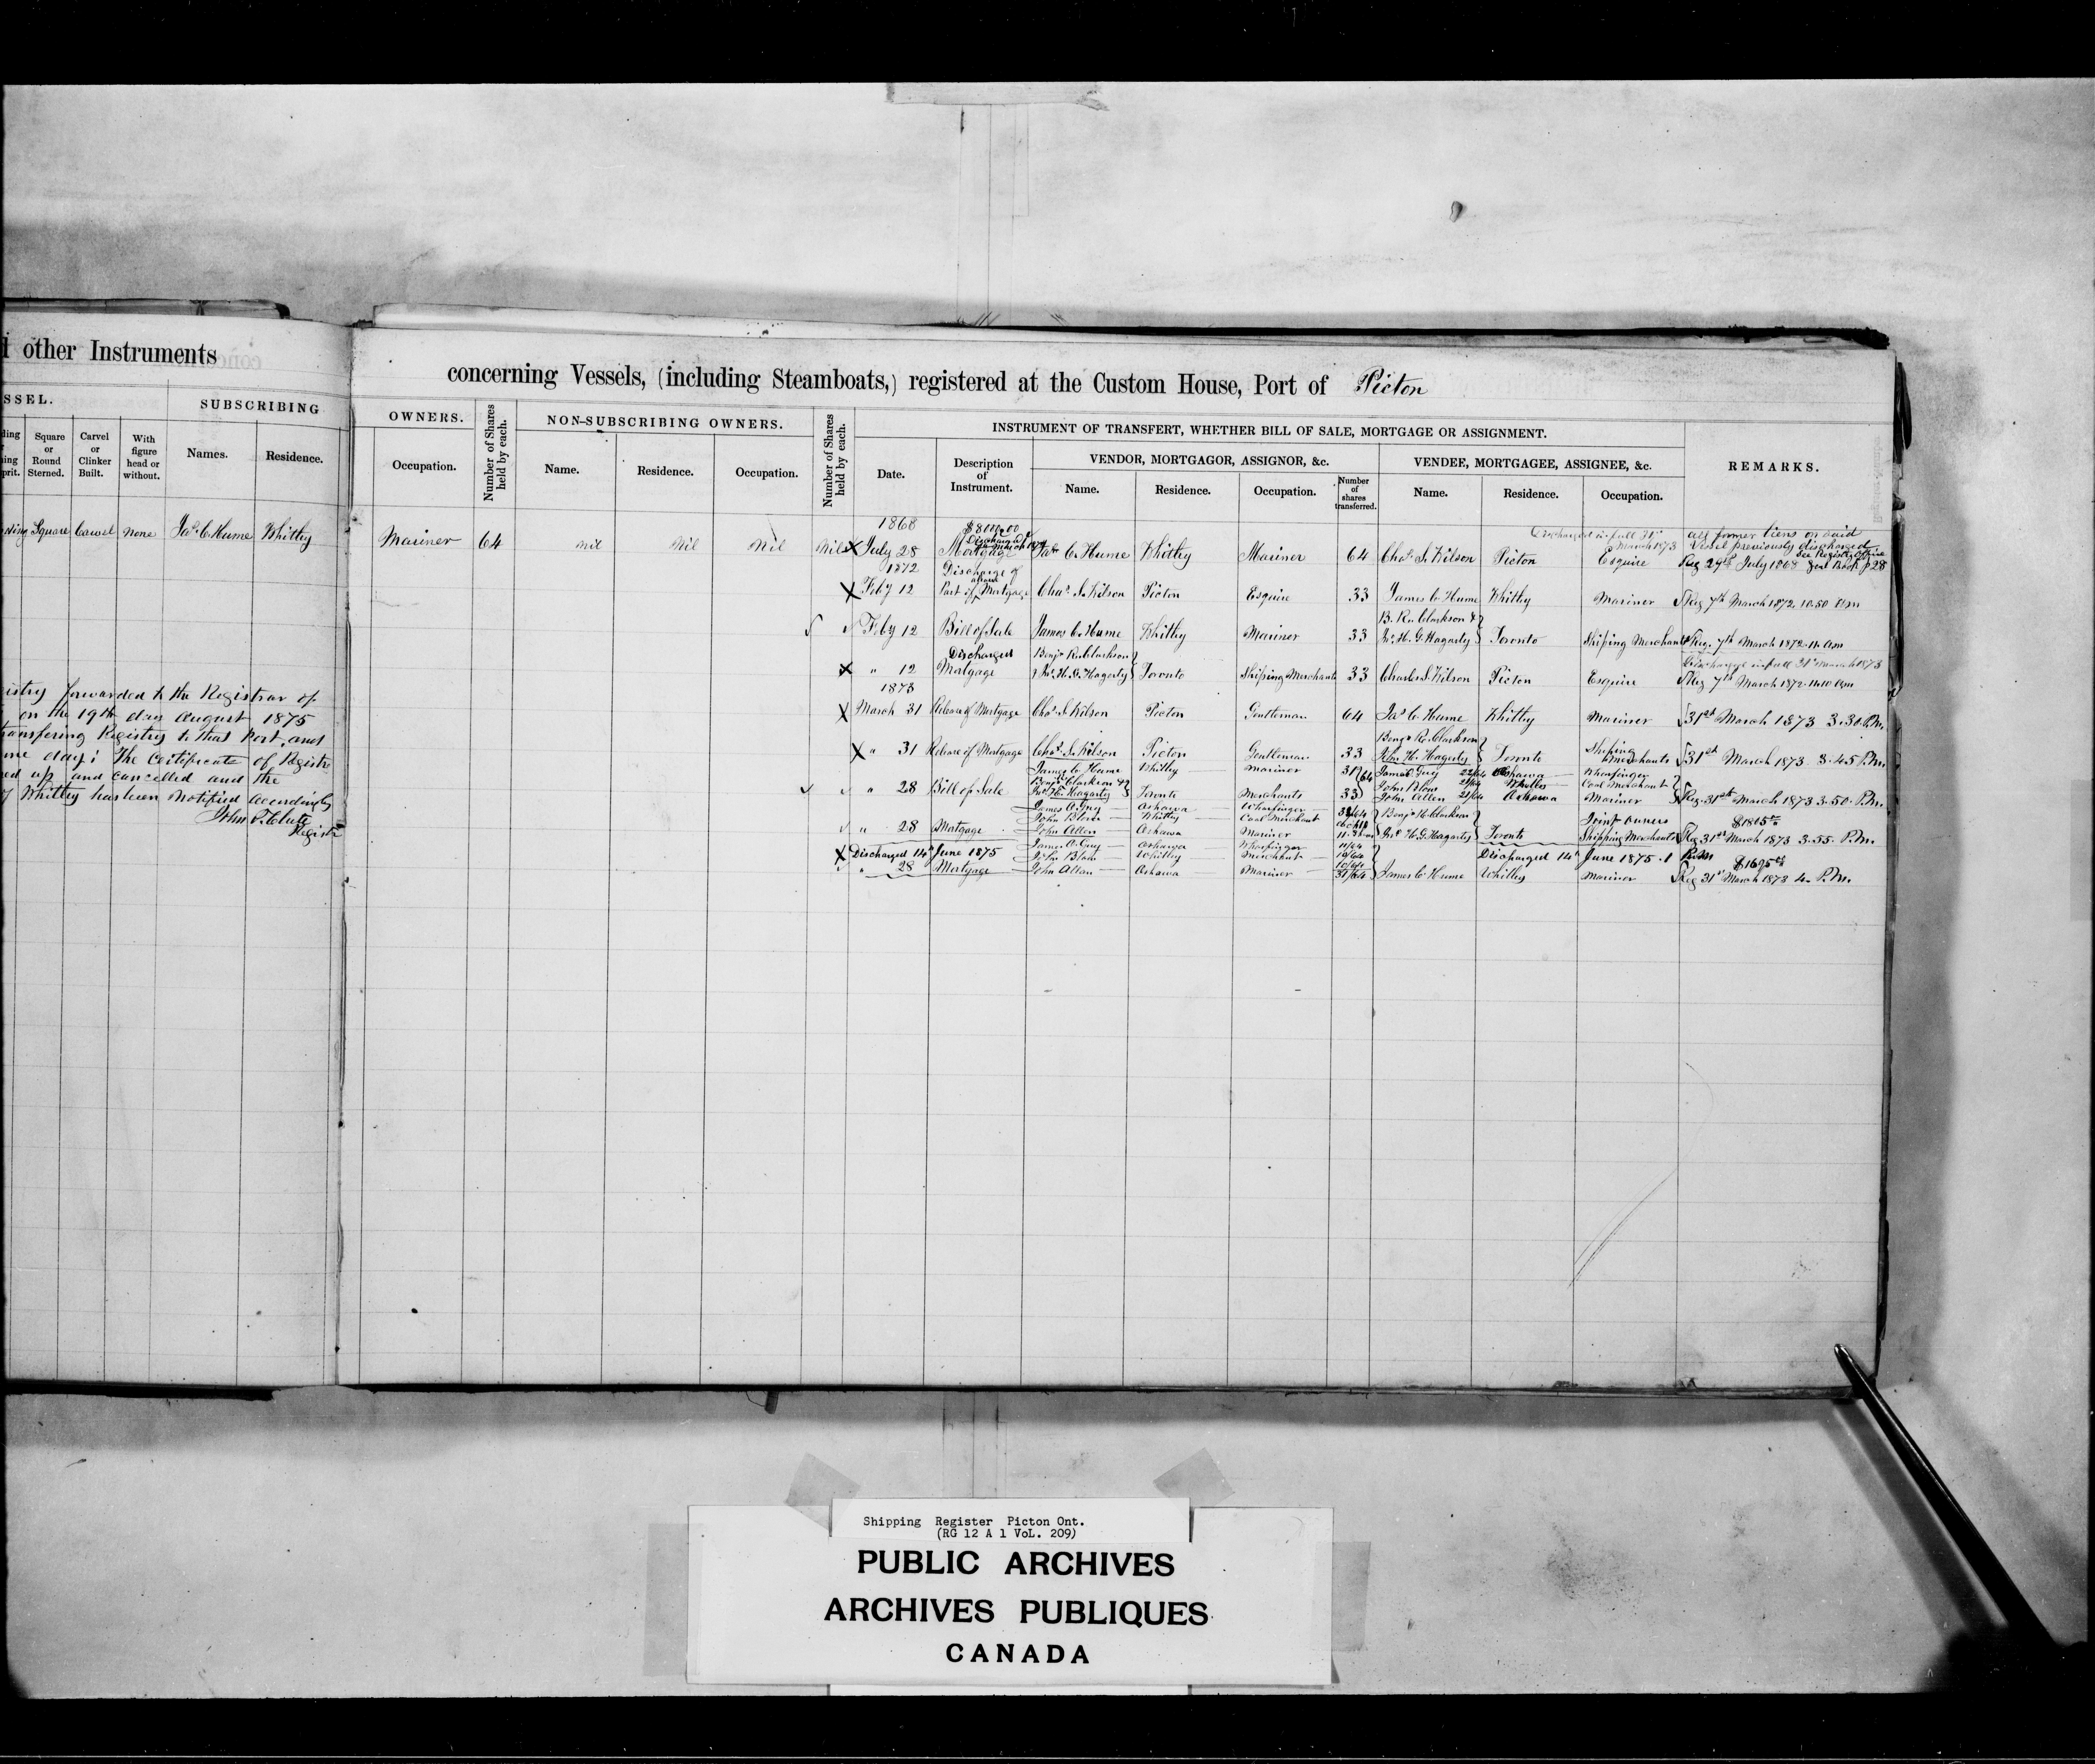 other Instruments
SSEL.
SUBSCRIBING
Square or Round Sterned.
Carvel or Clinker Built.
With figure head or without.
Names.
Residence.
Square Carvel None Jas. C. Hume Whitby
istry forwarded to the Registrar of
on the 19th day August 1875
ransfering Registry to that Port, and
me day; The Certificate of Registr
ed up and cancelled and the
of Whitby has been notified accordingly
John P. Clute
Registr
concerning Vessels, (including Steamboats,) registered at the Custom House, Port of Picton
OWNERS.
Occupation.
Number of Shares held by each.
NON-SUBSCRIBING OWNERS.
Name.
Residence.
Occupation.
Number of Shares held by each.
INSTRUMENT OF TRANSFERT, WHETHER BILL OF SALE, MORTGAGE OR ASSIGNMENT.
Date.
Description of Instrument.
VENDOR, MORTGAGOR, ASSIGNOR, &c.
Name.
Residence.
Occupation.
Number of shares transferred.
VENDEE, MORTGAGEE, ASSIGNEE, &c.
Name.
Residence.
Occupation.
REMARKS.
1868 $8000.00 Discharged in full 31st March 1873 all former liens on said
Vessel previously discharged
Mariner 64 nil Nil Nil Nil X July 28 Mortgage Jas. C. Hume Whitby Mariner 64 Chas. S. Wilson Picton Esquire Reg 29th July 1868
1872 Discharge of
X Feby 12 Part of Mortgage Chas. S. Wilson Picton Esquire 33 James C. Hume Whitby Mariner Reg 7th March 1872 10.50 am
B. R. Clarkson &
Feby 12 Bill of Sale James C. Hume Whitby Mariner 33 Jno. H. G. Hagarty Toronto Shipping Merchants Reg. 7th March 1872 11. am
Discharged Benj. R. Clarkson Discharged in full 31st March 1873
X " 12 Mortgage & Jno. H. G. Hagarty Toronto Shipping Merchants 33 Charles S. Wilson Picton Esquire Reg 7th March 1872 11.10 am
1873
X March 31 Release of Mortgage Chas. S. Wilson Picton Gentleman 64 Jas. C. Hume Whitby Mariner 31st March 1873 3.30 P.M.
Benj. R. Clarkson
X " 31 Release of Mortgage Chas. S. Wilson Picton Gentleman 33 Jno. H. Hagerty Toronto Shiping Merchants 31st March 1873 3.45 P.M.
James C. Hume Whitby Mariner 31 James O. Guy 22/64 Oshawa Wharfinger
" 28 Bill of Sale Benj. Clarkson & Jno. H. Hagarty Toronto Merchants 33 John Blow 21/64 Whitby Coal Merchant
John Allen 21/64 Oshawa Mariner Reg. 31st March 1873 3.50. P.M.
James O. Guy Oshawa Wharfinger
John Blow Whitby Coal Merchant Benj. R. Clarkson Joint Owners
" 28 Mortgage John Allen Oshawa Mariner Jno. H. G. Hagarty Toronto Shipping Merchants Reg 31st March 1873 3.55. P.M.
James O. Guy Oshawa Wharfinger
X Discharged 14th June 1875 John Blow Whitby Merchant Discharged 14th June 1875
" 28 Mortgage John Allan Oshawa Mariner James C. Hume Whitby Mariner Reg 31st March 1873 4. P.M.
Shipping Register Picton Ont.
(RG 12 A 1 VoL. 209)
PUBLIC ARCHIVES
ARCHIVES PUBLIQUES
CANADA